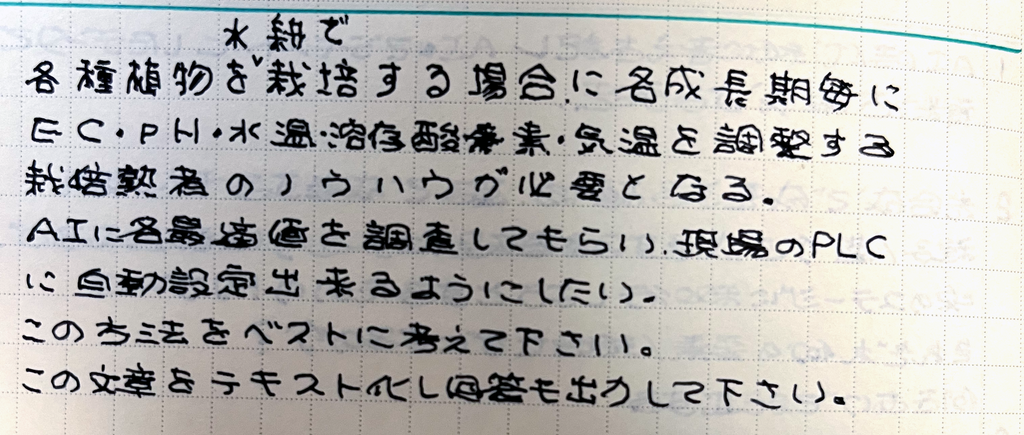 水耕で
各種植物を栽培する場合、に各成長期毎に
EC・PH・水温・溶存酸素・気温を調整する
栽培熟者のノウハウが必要となる。
AIに各最適値を調査してもらい、現場のPLC
に自動設定出来るようにしたい。
この方法をベストに考えて下さい。
この文章をテキスト化し回答も出力して下さい。